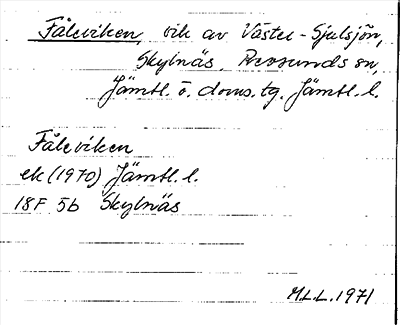 Fåleviken, vik av Väster-Sjulsjön,
Skylnäs, Revsunds sn,
Jämtl. ö. doms. tg. Jämtl. l.
Fåleviken
ek (1970) Jämtl. l.
18F 5b Skylnäs
M.L.L. 1971